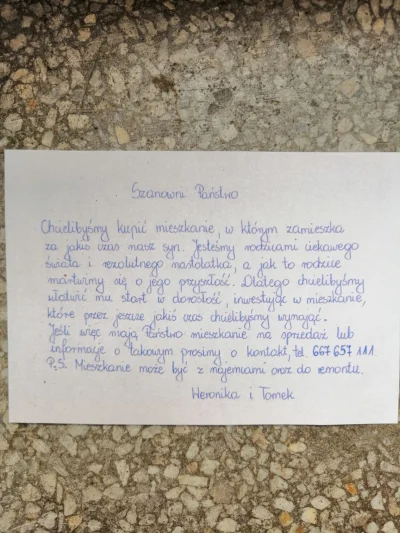 Szanowni Państwo
Chcielibyśmy kupić mieszkanie, w którym zamieszka
za jakiś czas nasz syn. Jesteśmy rodzicami ciekawego
świata i rezolutnego nastolatka, a jak to rodzice
martwimy się o jego przyszłość. Dlatego chcielibyśmy
ułatwić mu start w dorosłość, inwestując w mieszkanie,
które przez jeszcze jakiś czas chcielibyśmy wynająć.
Jeśli więc mają Państwo mieszkanie na sprzedaż lub
informacje o takowym prosimy o kontakt, tel. 667 657 111.
P.S. Mieszkanie może być z najemcami oraz do remontu.
Weronika i Tomek